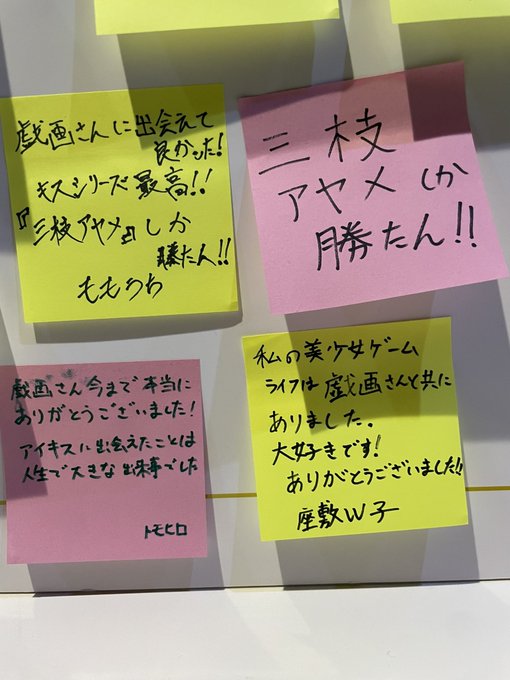 戯画さんに出会えて
良かった!
キスシリーズ最高!!
『三枝アヤメ』しか
勝たん!!
ももうち
三枝
アヤメしか
勝たん!!
戯画さん今まで本当に
ありがとうございました!
アイキスに出会えたことは
人生で大きな出来事でした
トモヒロ
私の美少女ゲーム
ライフは戯画さんと共に
ありました.
大好きです!
ありがとうございました!!
座敷W子